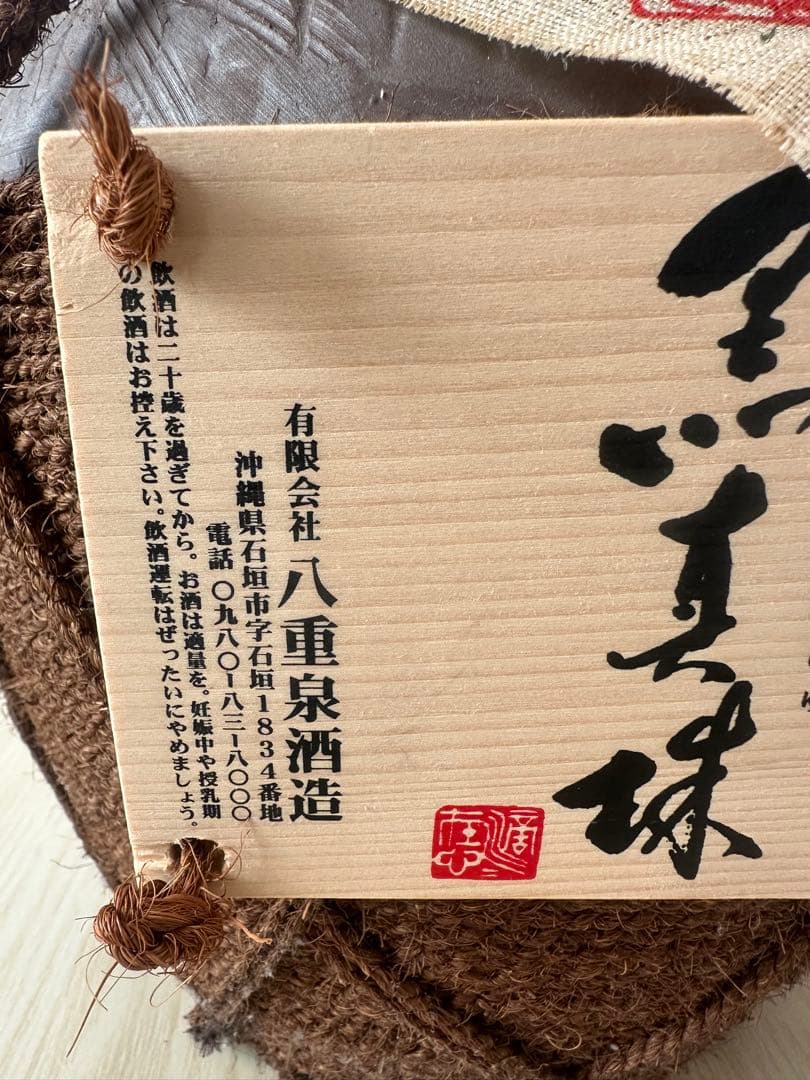 黒真珠
有限会社 八重泉酒造
沖縄県石垣市字石垣1834番地
電話 〇九八〇ー八三ー八〇〇〇
飲酒は二十歳を過ぎてから。お酒は適量を。妊娠中や授乳期
の飲酒はお控え下さい。飲酒運転はぜったいにやめましょう。